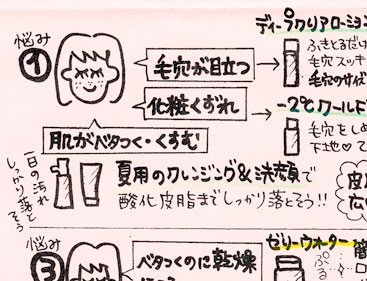 悩み
1
毛穴が目立つ
化粧くずれ
肌がベタつく・くすむ
ディープクリアローション
ふきとるだけ
毛穴スッキ
毛穴のサイズ
-2℃クールド
毛穴をしめ
下地♡て
一日の汚れ
しっかり落と
そう
夏用のクレンジング&洗顔で
酸化皮脂までしっかり落とそう!!
皮
広
悩み
3
ベタつくのに乾燥
ゼリーウォーター
ぷる